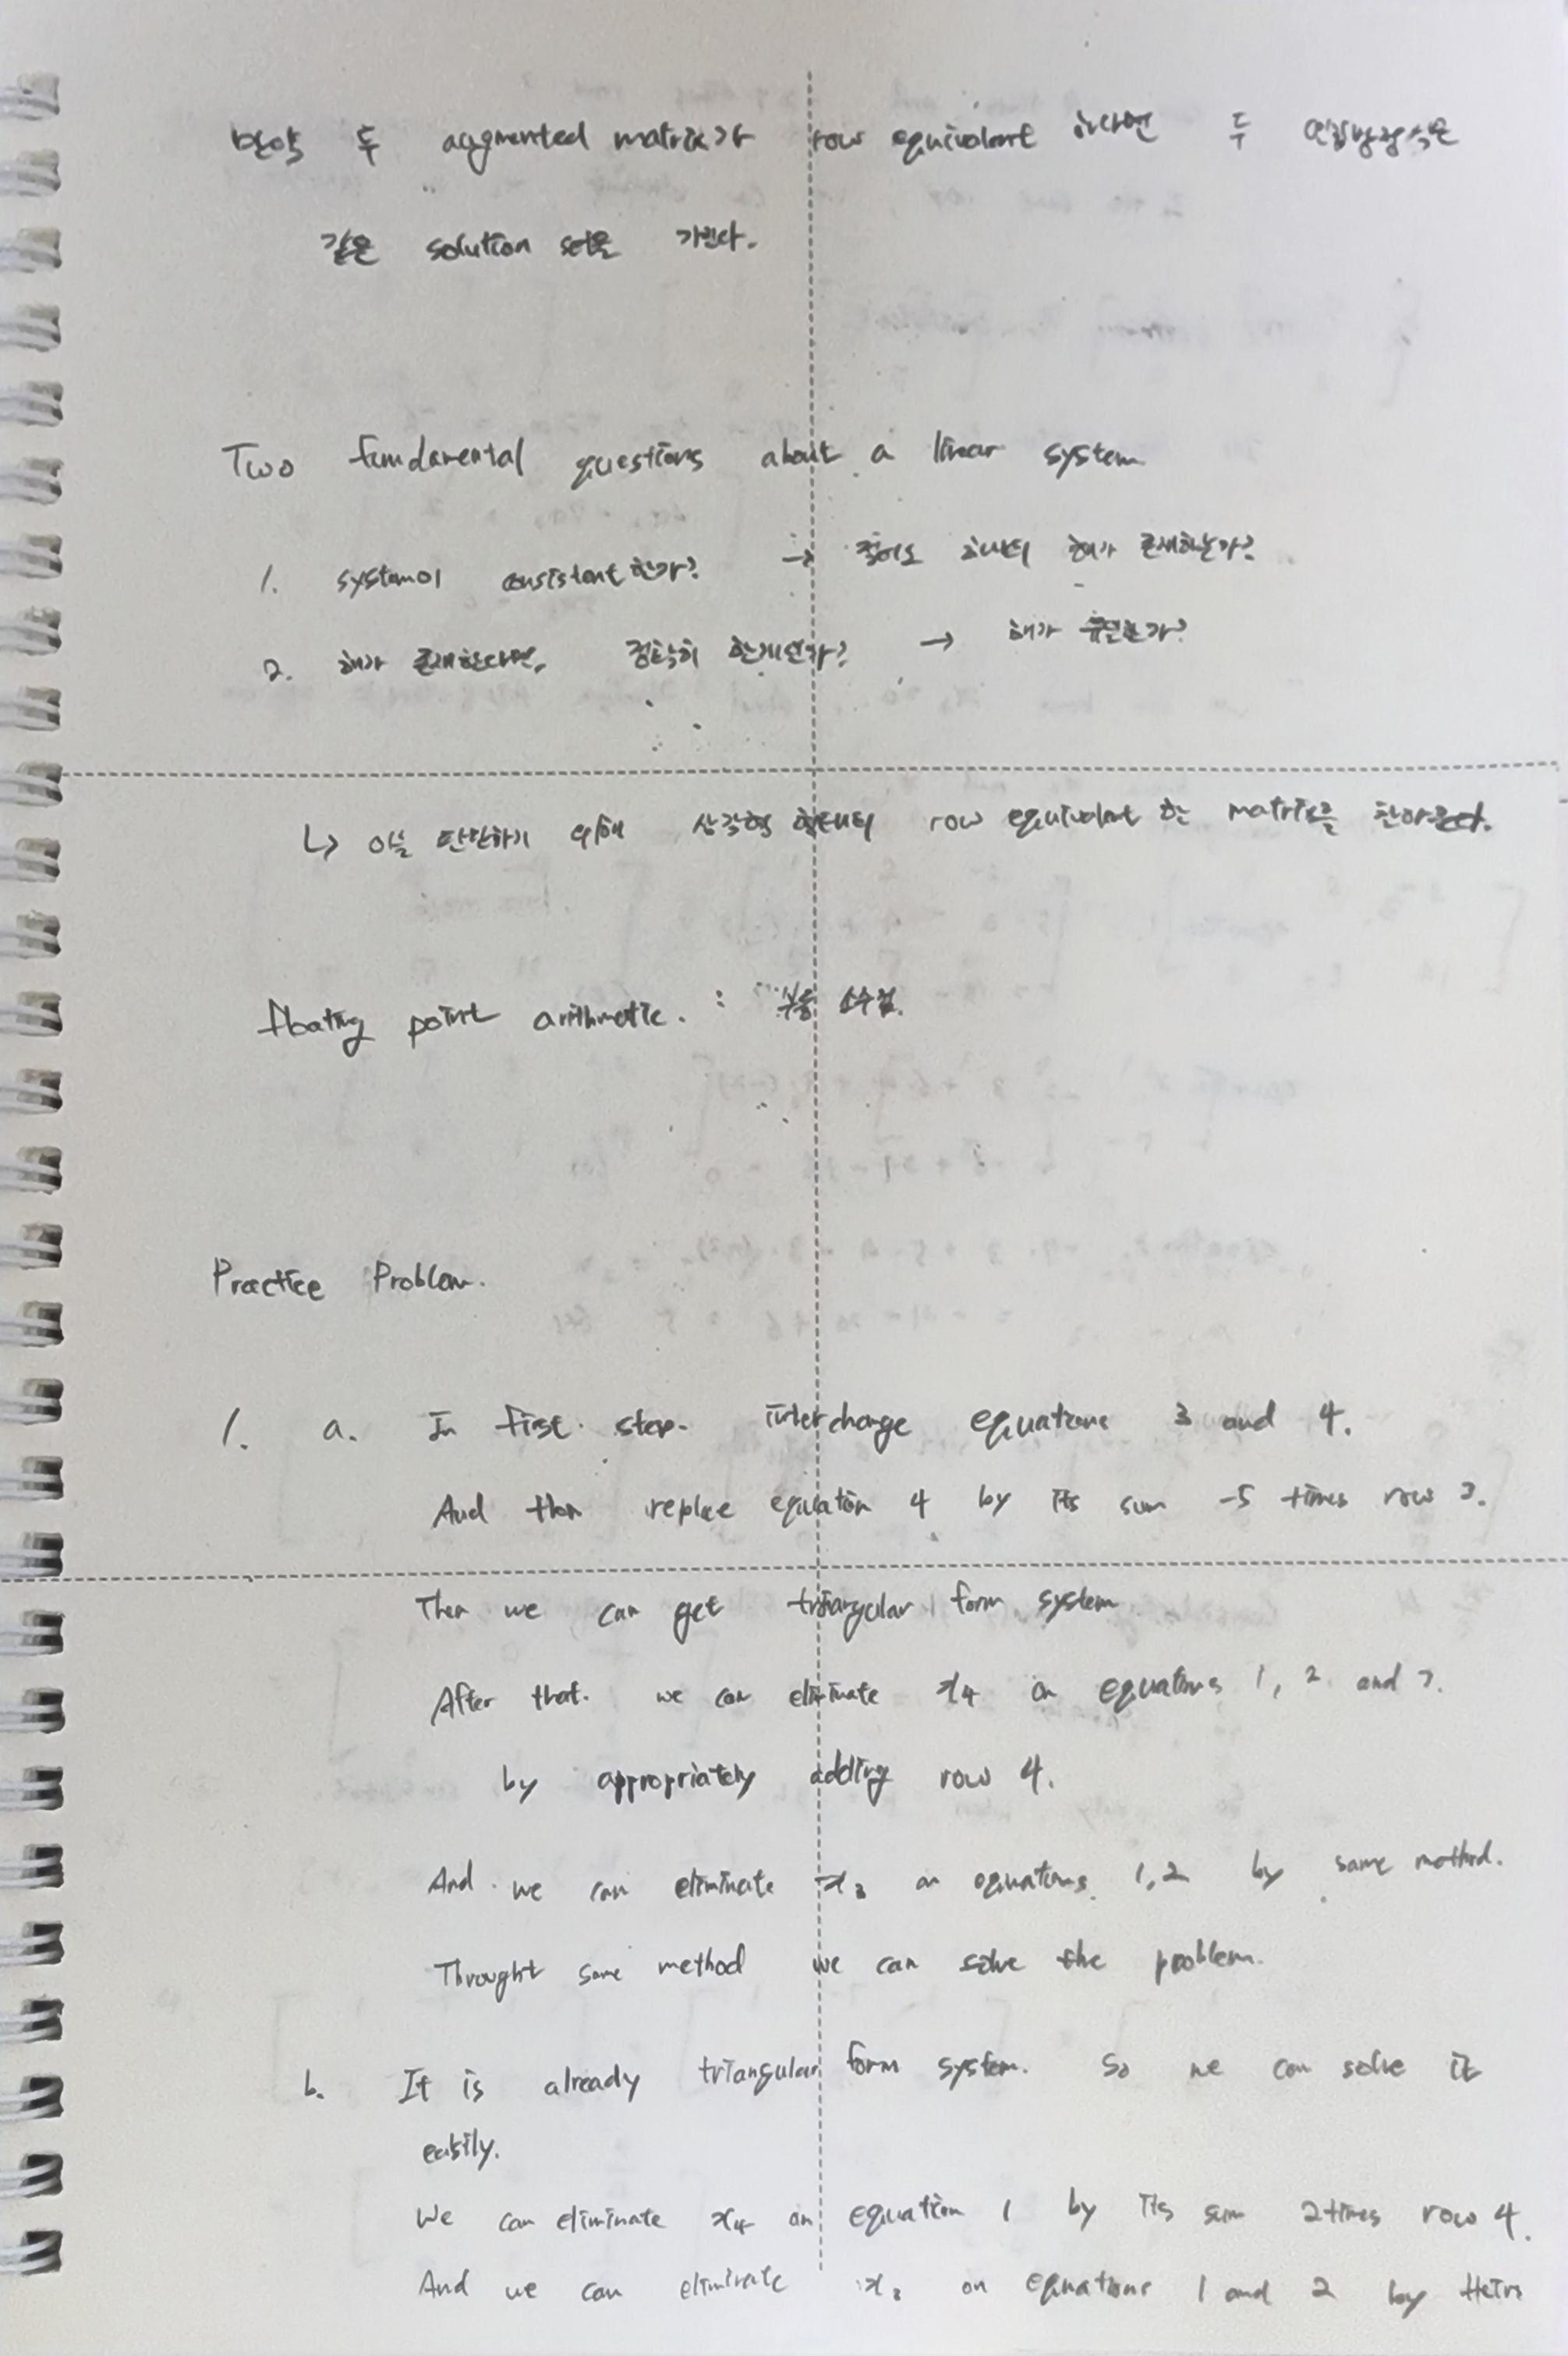 만약 두 augmented matrix가 row equivalent 하다면 두 연립방정식은
같은 solution set을 가진다.
Two fundamental questions about a linear system
1. system이 consistent 한가? → 적어도 하나의 해가 존재하는가?
2. 해가 존재한다면, 정확히 한개인가? → 해가 유일한가?
↳ 이를 판단하기 위해 삼각형 형태의 row equivalent 한 matrix를 찾아본다.
floating point arithmetic. : 부동 소수점.
Practice Problem.
1. a. In first step. interchange equations 3 and 4.
And then replce equation 4 by its sum -5 times row 3.
Then we can get triangular form system
After that. we can eliminate x4 on equations 1, 2 and 3.
by appropriately adding row 4.
And we can eliminate x3 on equations 1,2 by same method.
Throught same method we can solve the problem.
b. It is already triangular form system. So we can solve it
easily.
We can eliminate x4 on equation 1 by its sum 2times row 4.
And we can eliminate x3 on equations 1 and 2 by